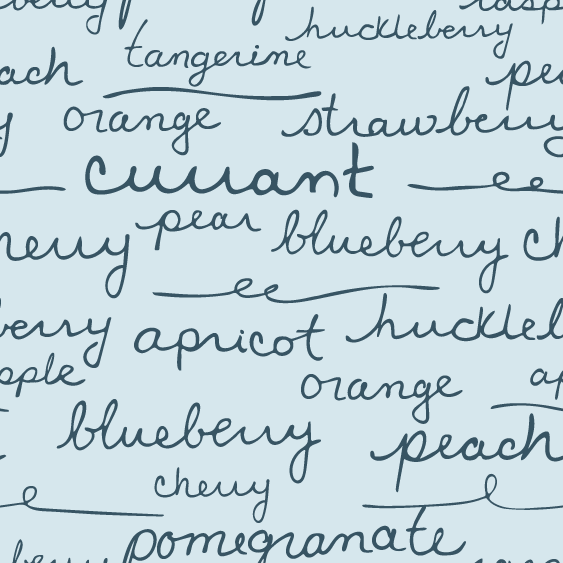 huckleberry
tangerine
orange strawberry
currant
pear
cherry blueberry
berry apricot huckleb
orange
blueberry peach
cherry
pomegranate